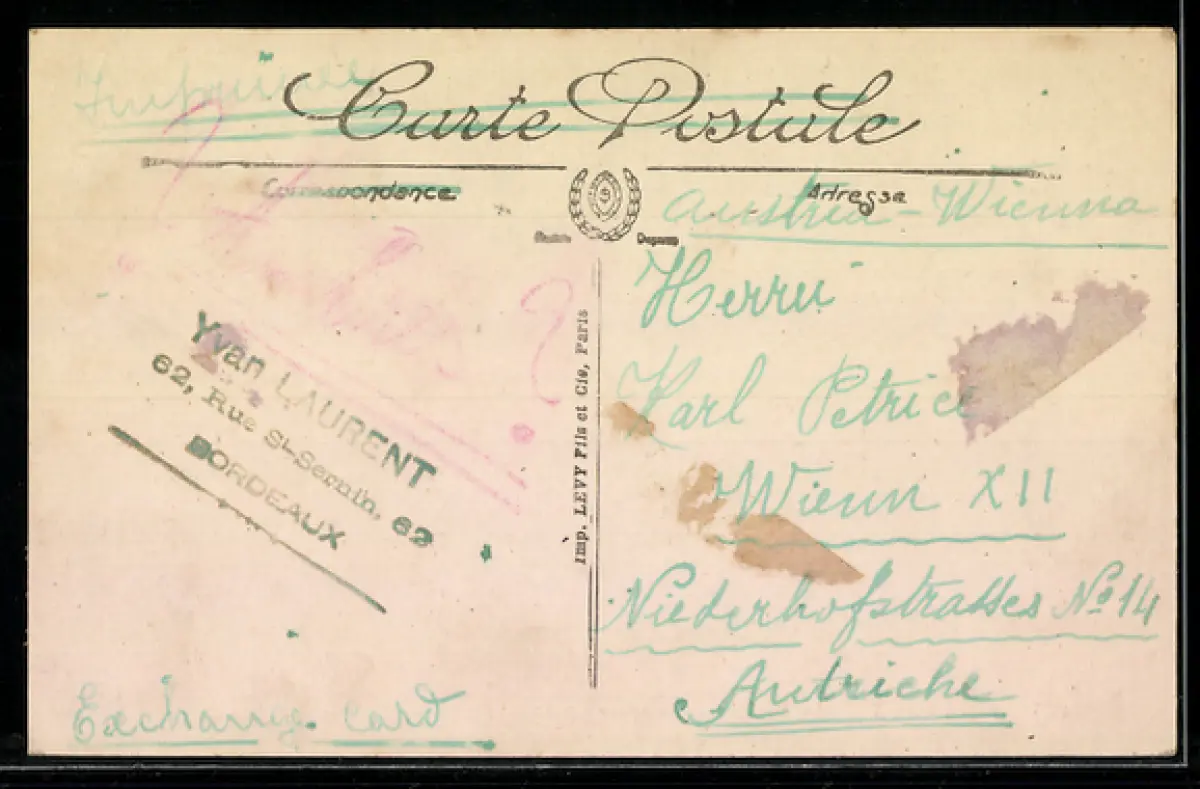 Carte Postale
Correspondance
Adresse
Austria - Wienna
Herrn
Karl Petrice
Wienn XII
Niederhofstrasses No 14
Autriche
Imp. LEVY Fils et Cie, Paris
Yvan LAURENT
62, Rue St-Sernin, 62
BORDEAUX
Exchange card